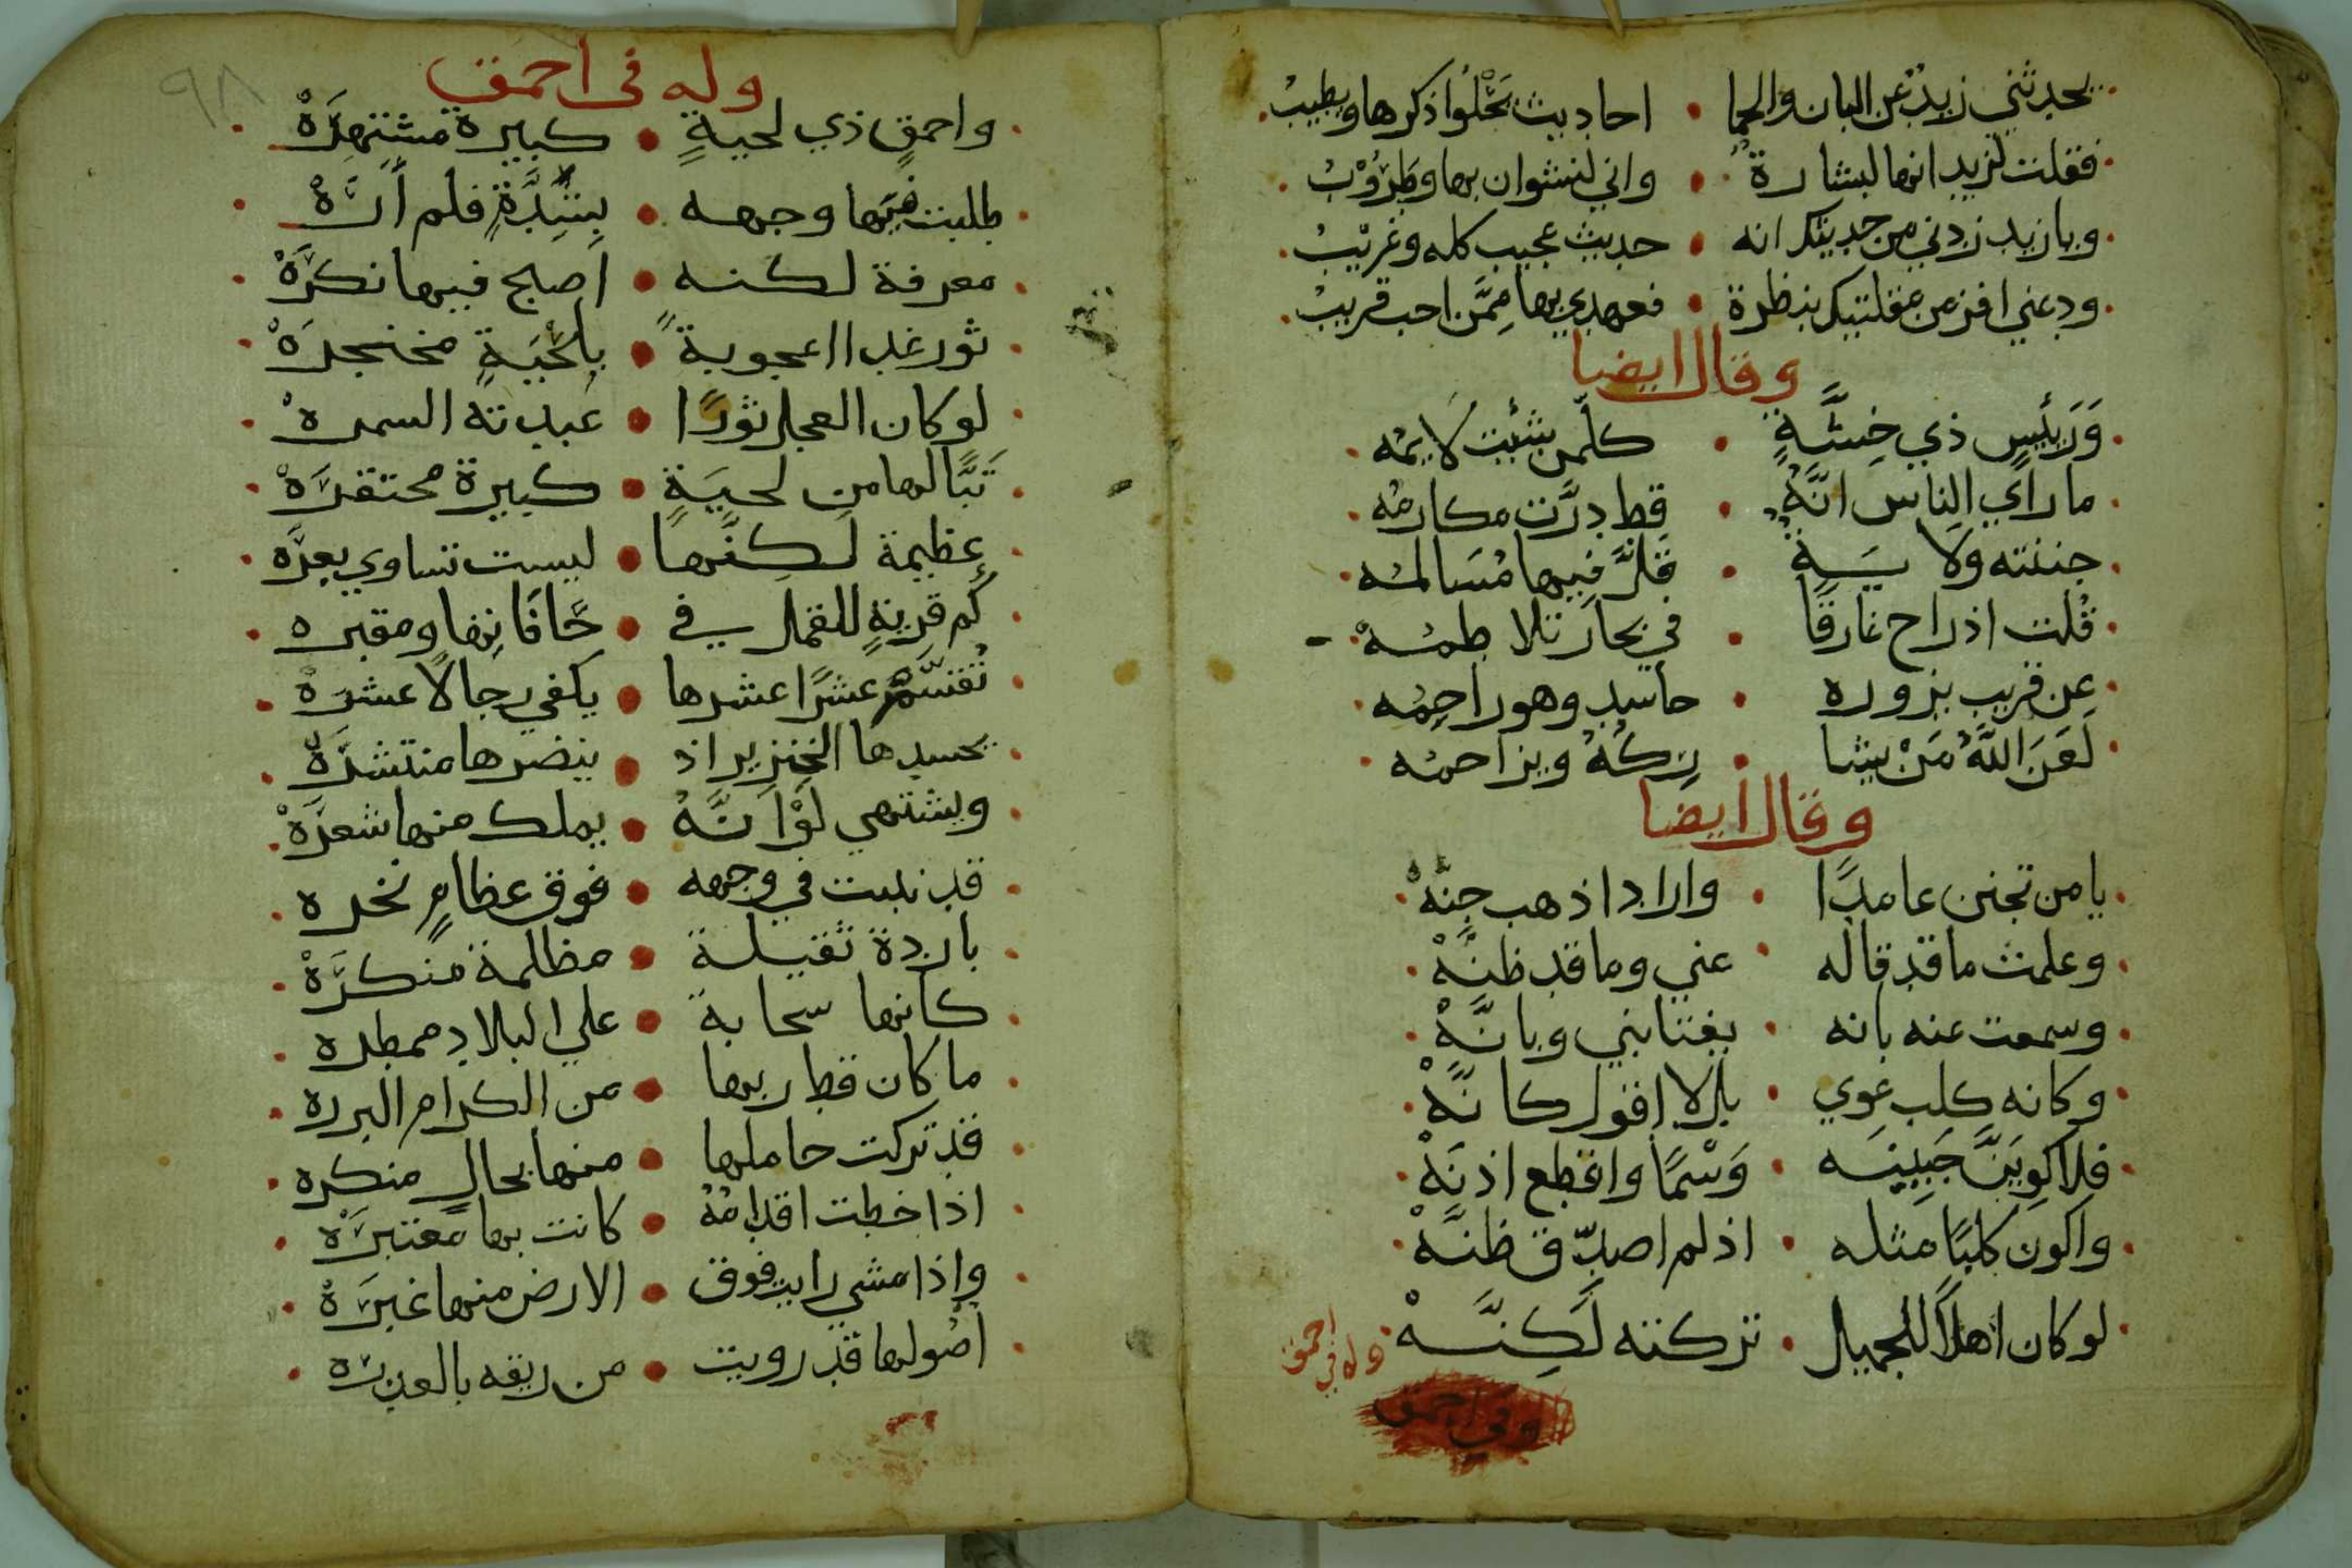 يحدثني زيد عن البان والحما • احاديث يحلوا ذكرها ويطيب
فقلت لزيد انها لبشارة • واني لنشوان بها وطروب
ويا زيد زدني من حديثك انه • حديث عجيب كله وغريب
ودعني افز من مقلتيك بنظرة • فعهدي بها ممن احب قريب
وقال ايضا
وَرَئيسٍ ذي خِسَّةٍ • كلّمن شئت لايمُه
ما راي الناس انَّهُ • قط درَّت مكارمُه
جئته ولا يَسَةٍ • قلَّ فيها مُسَالمُه
قُلت اذ راح غارقًا • في بحار تلاطمُهْ
عن قريب نزوره • حاسد وهو راحِمُه
لَعَنَ اللَّهُ مَنْ يشا • رِكهُ ويزاحمُه
وقال أيضا
يا من تجنن عامدًا • واراد اذهب جِنَّهْ
وعلمت ما قد قاله • عني وما قد ظنَّهْ
وسمعت عنه بانه • يغتابني وبانَّهْ
وكانه كلب عوي • بل لا اقول كانَّهْ
فلاكوِيَنَّ جَبِينَه • وَسْمًا واقطع اذنَهْ
واكون كلبًا مثله • اذ لم اصدّق ظنَّهْ
لو كان اهلاً للجميل • تركته لَكِنَّهْ
وله في احمق
وفي احمق
٩٨
وله في احمق
واحمقٍ ذي لحيةٍ • كبيرة مشتهِرَهْ
طلبت فيها وجهه • بشِدَّةٍ فلم أَرَهْ
معرفة لكنه • اصبح فيها نكرَهْ
ثور غدا اعجوبةً • بلحْيَةٍ مخنجرَهْ
لو كان العجل ثورًا • عبدته السمرهْ
تَبًّا لها من لحيَةٍ • كبيرة محتقرَهْ
عظيمة لكِنَّها • ليست تساوي بعرَّه
كم قريةٍ للقمل في • حَافَاتِها ومقبره
تُقسَّم عشرًا عشرها • يكفي رجالاً عشرَهْ
يحسدها الخنزير اذ • ينضرها منتشرَهْ
ويشتهي لَوْ انَّهُ • يملك منها شعرَهْ
قد نبتت في وجهه • فوق عظامٍ نخره
باردة ثقيلة • مظلمة منكرَهْ
كانها سحابة • علي البلاد ممطره
ما كان قط ربها • من الكرام البرره
قد تركت حاملها • منها بحالٍ منكره
اذا خطت اقدامُهُ • كانت بها معتبرَهْ
واذا مشي رايت فوق • الارض منها غبرَهْ
اصُولها قد رويت • من ريقه بالعذرَه